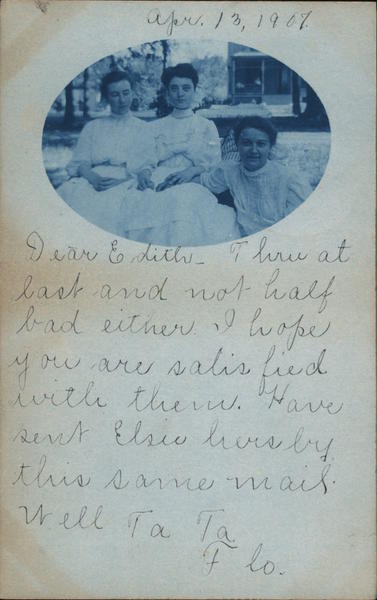 Apr. 13, 1907.
Dear Edith- Thru at
last and not half
bad either. I hope
you are satisfied
with them. Have
sent Elsie hers by
this same mail.
Well Ta Ta
Flo.